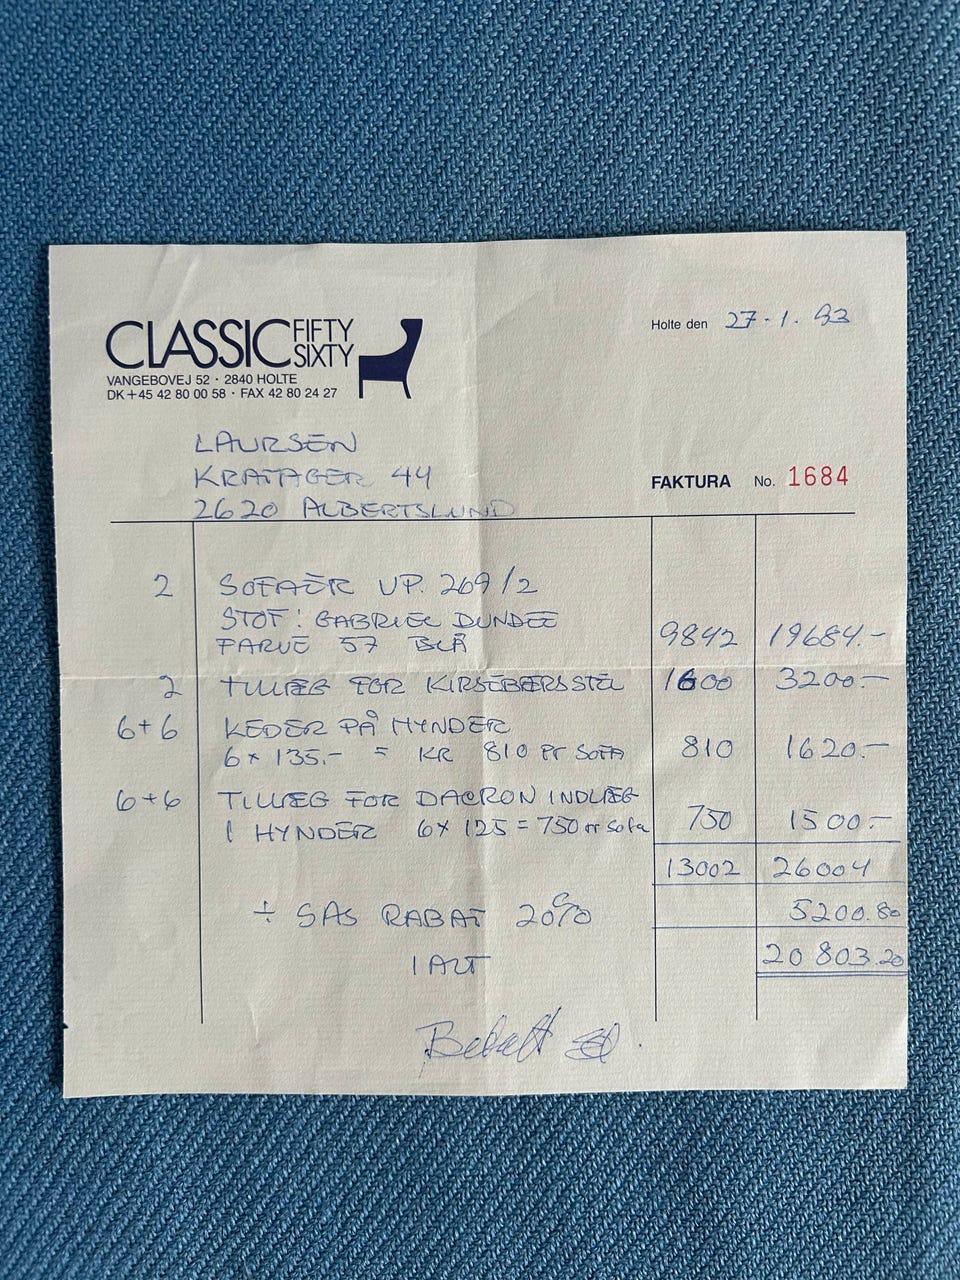 CLASSIC FIFTY SIXTY
VANGEBOVEJ 52 · 2840 HOLTE
DK+45 42 80 00 58 · FAX 42 80 24 27
Holte den 27.1.93
LAURSEN
KRATAGER 44
2620 ALBERTSLUND
FAKTURA No. 1684
2 SOFAER VP. 269/2
STOF: GABRIEL DUNDEE
FARVE 57 BLÅ 9842 19684.-
2 TILLÆG FOR KIRSEBÆRSSTEL 1600 3200.-
6+6 KEDER PÅ HYNDER
6 x 135.- = KR 810 PR SOFA 810 1620.-
6+6 TILLÆG FOR DACRON INDLÆG
I HYNDER 6x 125 = 750 pr sofa 750 1500.-
13002 26004
÷ SAS RABAT 20% 5200.80
I ALT 20803.20
Betalt